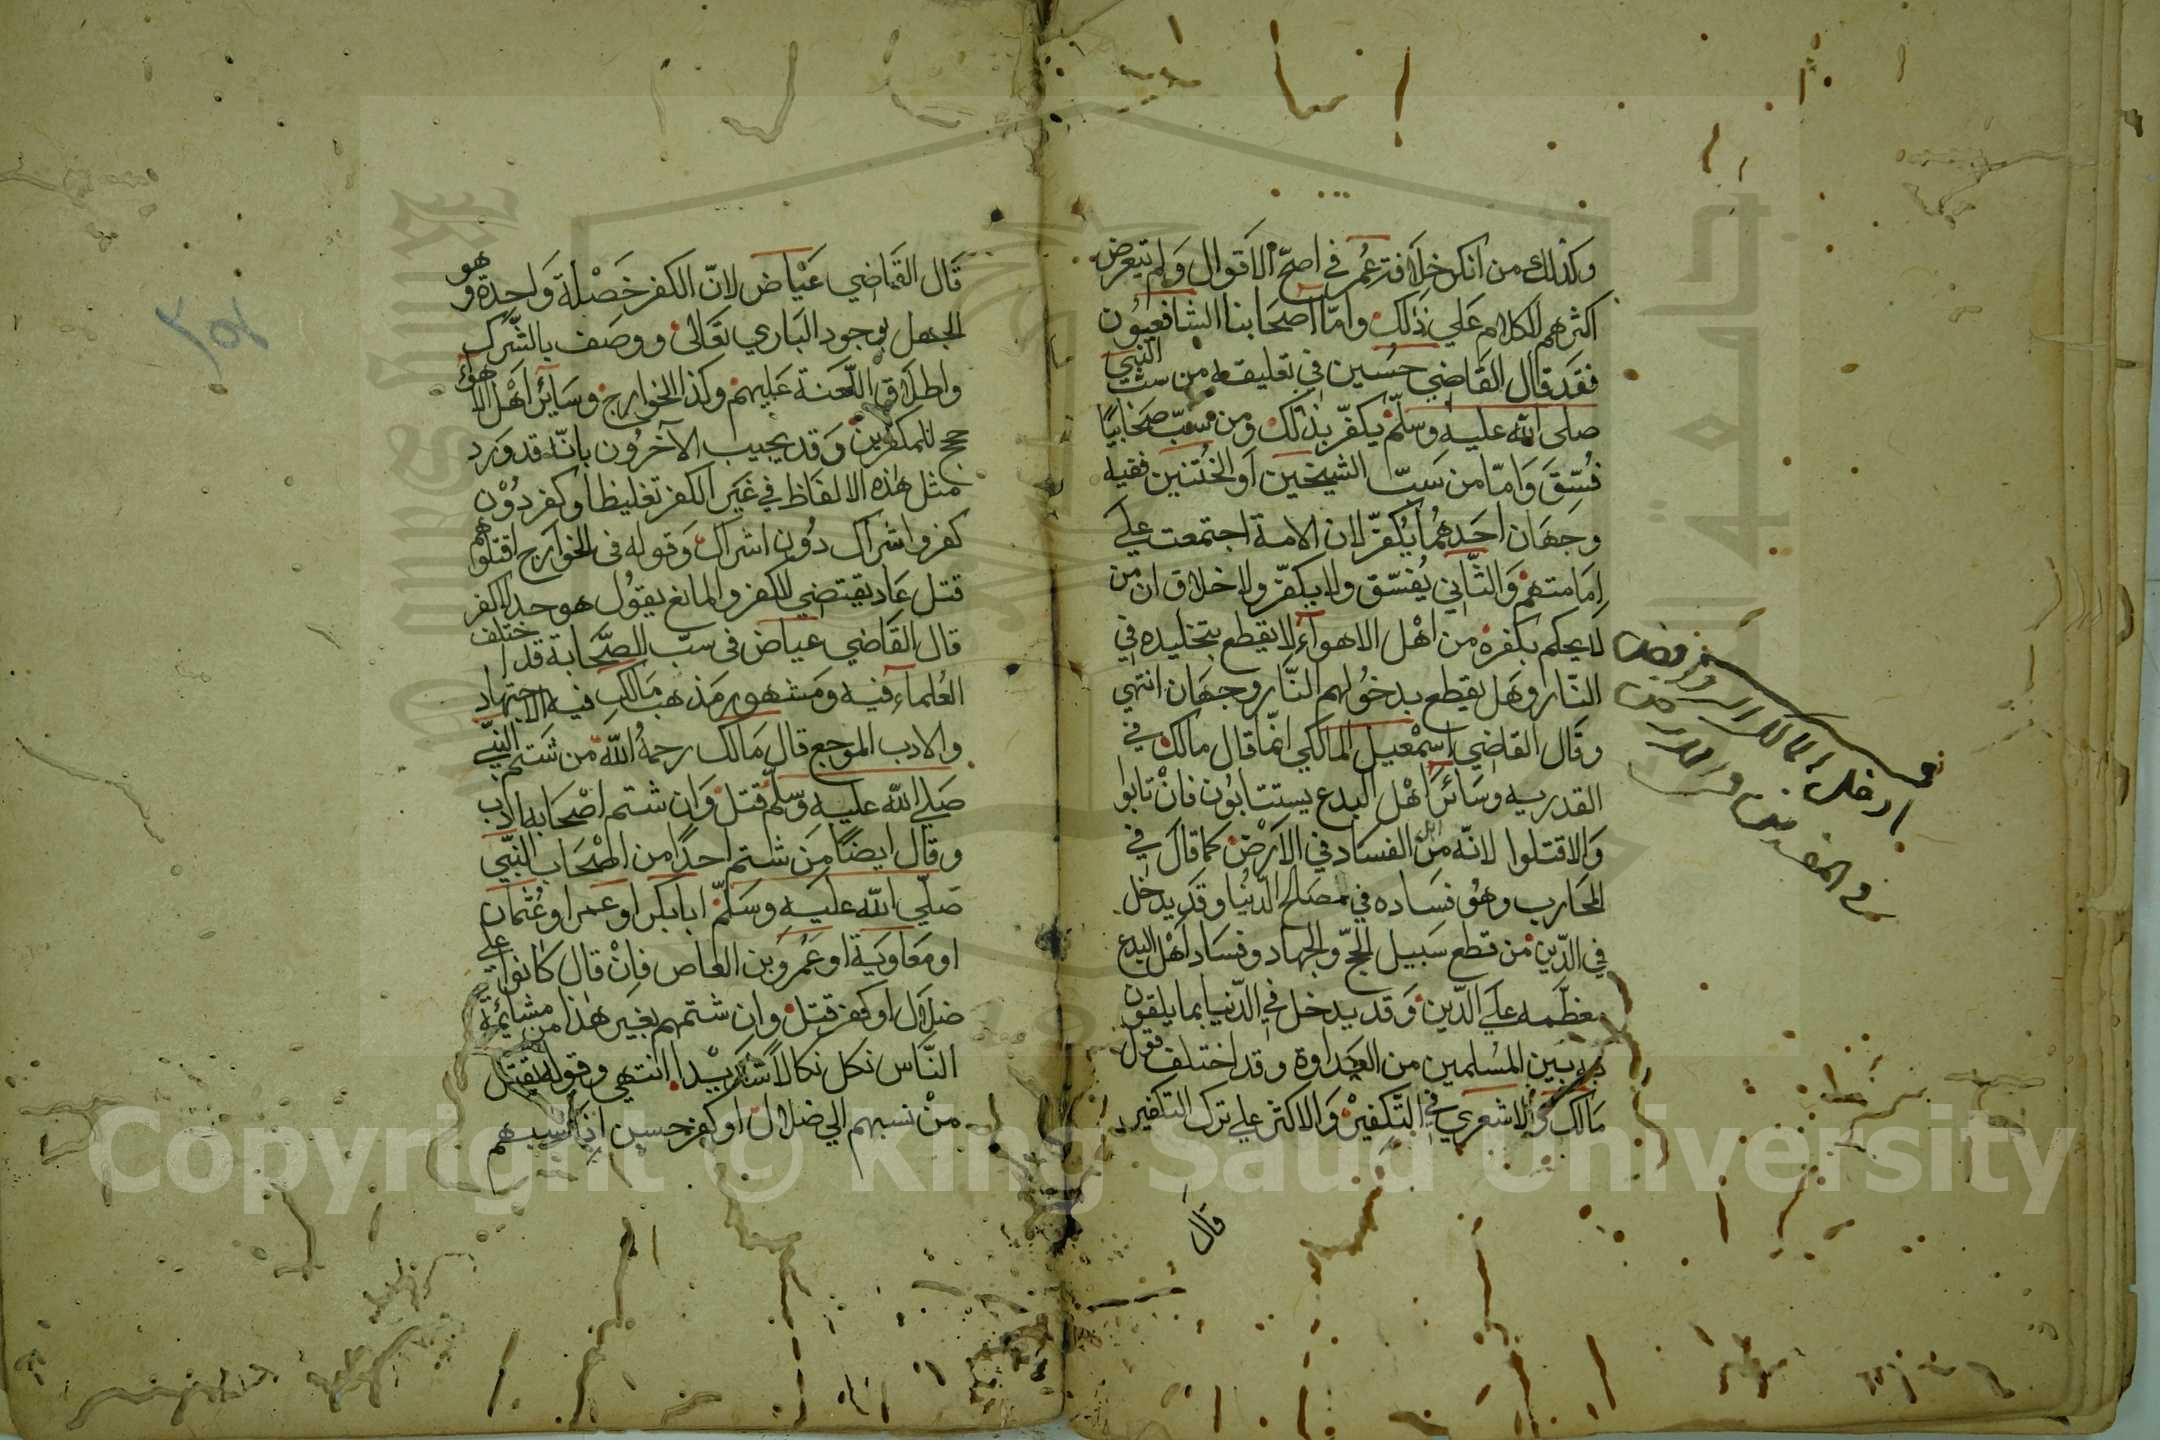 وكذلك من انكر خلافة عمر في اصح الاقوال ولم يتعرض
اكثرهم للكلام علي ذلك واما اصحابنا الشافعيون
فقد قال القاضي حسين في تعليقه من سب النبي
صلى الله عليه وسلم يكفر بذلك ومن سب صحابيا
فسق واما من سب الشيخين او الختنين ففيه
وجهان احدهما يكفر لان الامة اجتمعت علي
امامتهم والثاني يفسق ولا يكفر ولا خلاف ان من
لا يحكم بكفره من اهل الاهواء لا يقطع بتخليده في
النار وهل يقطع بدخولهم النار وجهان انتهي
وقال القاضي اسمعيل المالكي انما قال مالك في
القدريه وسائر اهل البدع يستتابون فان تابوا
والا قتلوا لانه من الفساد في الارض كما قال في
المحارب وهو فساده في مصالح الدنيا وقد يدخل
في الدين من قطع سبيل الحج والجهاد وفساد اهل البدع
معظمه علي الدين وقد يدخل في الدنيا بما يلقون
به بين المسلمين من العداوة وقد اختلف قول
مالك والاشعري في التكفير والاكثر علي ترك التكفير
قال
قال القاضي عياض لان الكفر خصلة واحدة وهو
الجهل بوجود الباري تعالى ووصف بالشرك
واطلاق اللعنة عليهم وكذا الخوارج وسائر اهل الاهواء
حجج للمكفرين وقد يجيب الآخرون بانه قد ورد
مثل هذه الالفاظ في غير الكفر تغليظا وكفر دون
كفر واشراك دون اشراك وقوله في الخوارج اقتلوهم
قتل عاد يقتضي الكفر والمانع يقول هو حد لا كفر
قال القاضي عياض في سب الصحابة قد اختلف
العلماء فيه ومشهور مذهب مالك فيه الاجتهاد
والادب الموجع قال مالك رحمه الله من شتم النبي
صلي الله عليه وسلم قتل وان شتم اصحابه ادب
وقال ايضا من شتم احدا من اصحاب النبي
صلي الله عليه وسلم ابا بكر او عمر او عثمان
او معاوية او عمرو بن العاص فان قال كانوا علي
ضلال او كفر قتل وان شتمهم بغير هذا من مشاتمة
الناس نكل نكالا شديدا انتهي وقوله يقتل
من نسبهم الي ضلال او كفر حسن اذا نسبهم
Copyright © King Saud University